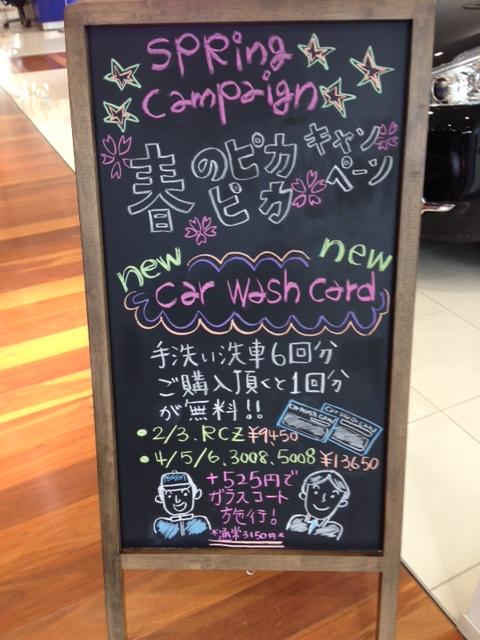 SPRing
Campaign
春のピカピカキャンペーン
new new
car wash card
手洗い洗車6回分
ご購入頂くと1回分
が無料!!
Car Wash Card Car Wash Card
・2/3.RCZ ¥9,450
・4/5/6、3008、5008 ¥13650
+525円で
ガラスコート
施行!
*通常3150円*